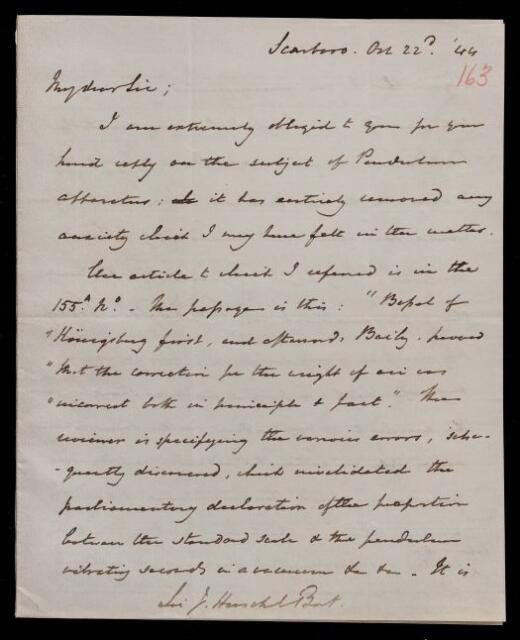 Scarboro. Oct 22d. '44
163
My dear Sir;
I am extremely obliged to you for your
kind reply on the subject of Pendulum
apparatus: it has entirely removed any
anxiety which I may have felt in the matter.
The article to which I referred is in the
155th No. - The passage is this: "Bessel of
"Königsburg first, and afterwards Baily, proved
"that the correction for the weight of air was
"incorrect both in principle & fact." The
reviewer is specifying the various errors, subse-
-quently discovered, which invalidated the
parliamentary declaration of the proportion
between the standard scale & the pendulum
vibrating seconds in a vacuum &c &c - It is
Sir J. Herschel Bart.